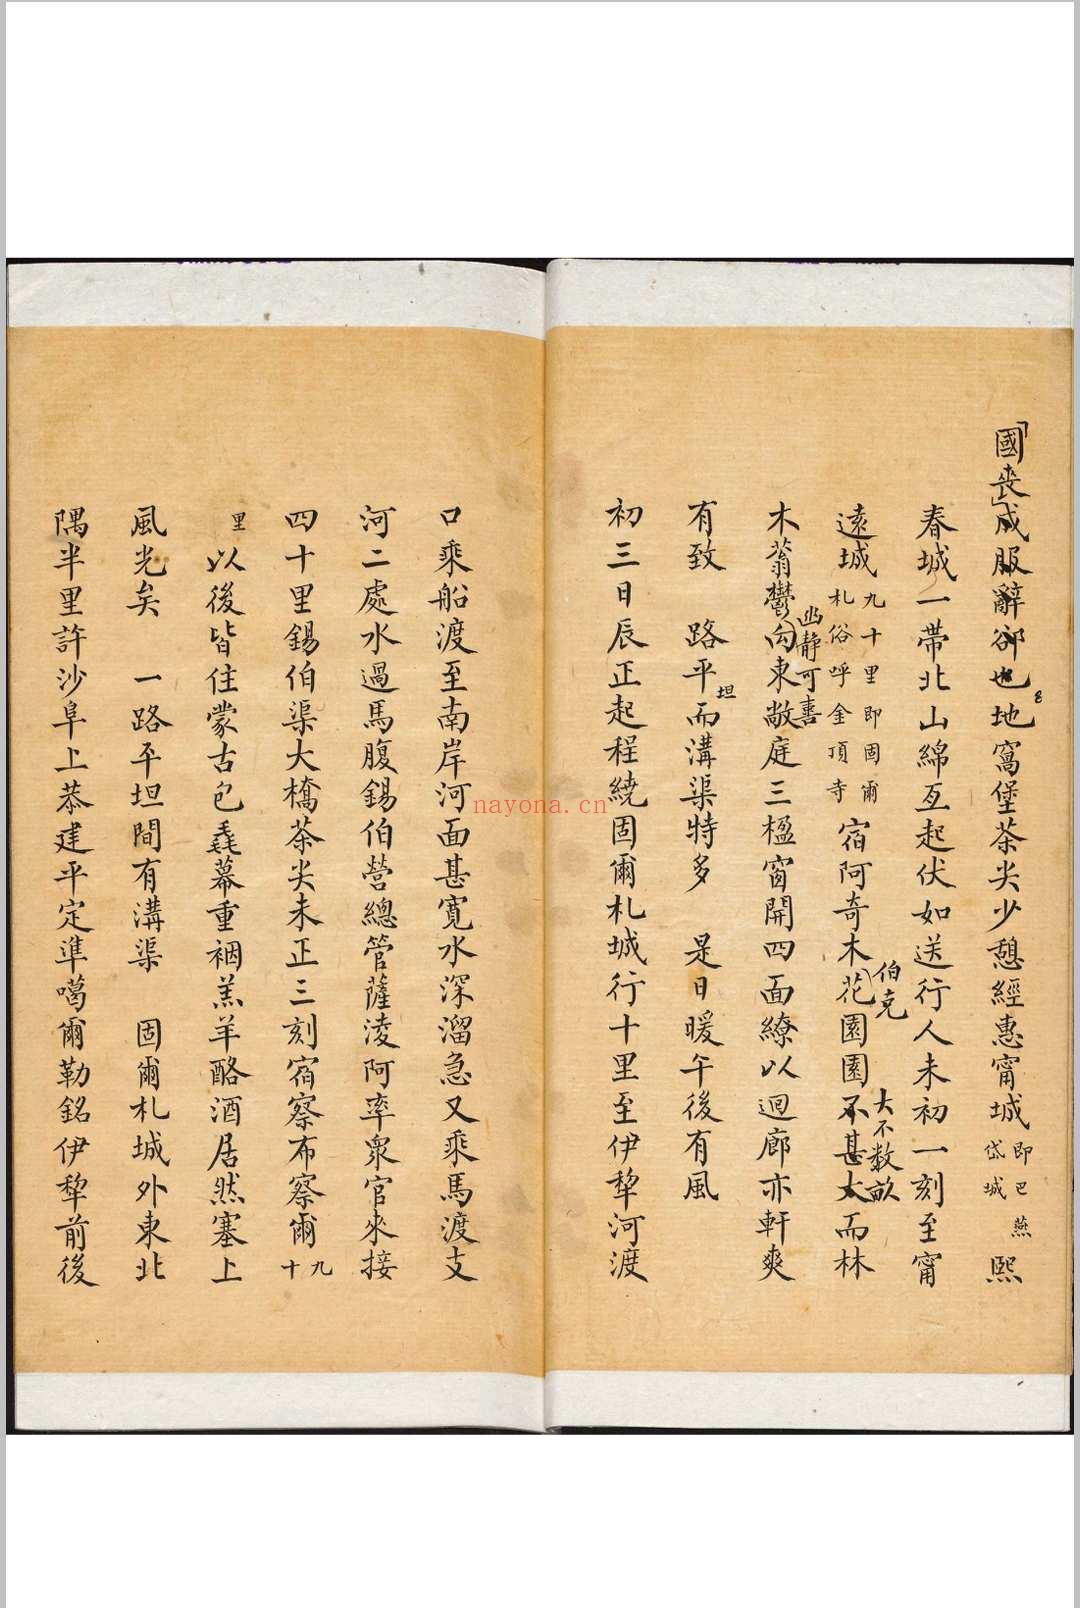 國喪成服辭卻也地窩堡茶尖少憩經惠甯城即巴燕岱城熙
春城一帶北山綿亙起伏如送行人未初一刻至甯
遠城九十里即固爾札俗呼金頂寺宿阿奇木伯克花園園不甚大大不数畝而林
木蓊鬱幽静可喜向東敞庭三楹窗開四面繚以迴廊亦軒爽
有致 路平坦而溝渠特多 是日暖午後有風
初三日辰正起程繞固爾札城行十里至伊犂河渡
口乘船渡至南岸河面甚寬水深溜急又乘馬渡支
河二處水過馬腹錫伯營總管薩淩阿率衆官來接
四十里錫伯渠大橋茶尖未正三刻宿察布察爾九十
里以後皆住蒙古包毳幕重裀羔羊酪酒居然塞上
風光矣 一路平坦間有溝渠 固爾札城外東北
隅半里許沙阜上恭建平定準噶爾勒銘伊犂前後
nayona.cn